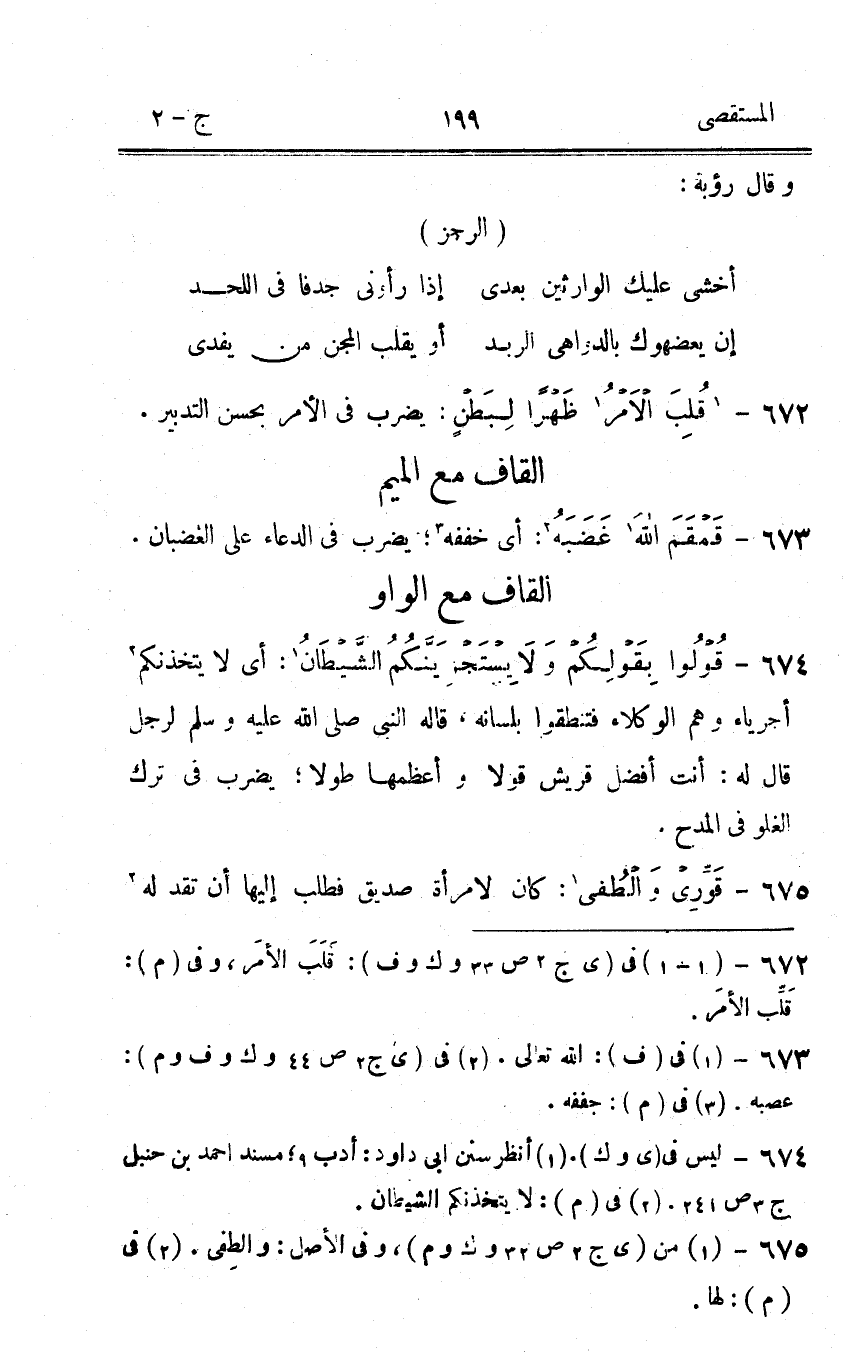 المستقصى ١٩٩ ج - ٢
و قال رؤبة :
( الرجز )
أخشى عليك الوارثين بعدى إذا رأونى جدفا فى اللحـــد
إن يعضهوك بالدواهى الربـد أو يقلب المجن مـن يفدى
٦٧٢ - ١قُلِبَ الْأَمْرُ١ ظَهْرًا لِـبَطْنٍ : يضرب فى الأمر بحسن التدبير .
القاف مع الميم
٦٧٣ - قَمْقَمَ اللهُ١ غَضَبَهُ٢: أى خففه٣؛ يضرب فى الدعاء على الغضبان .
القاف مع الواو
٦٧٤ - قُوْلُوا بِقَوْلِـكُمْ وَ لَا يَسْتَجْرِيَنَّـكُمُ الشَّيْطَانُ١: أى لا يتخذنكم٢
أجرياء و هم الوكلاء فتنطقوا بلسانه، قاله النبى صلى الله عليه و سلم لرجل
قال له : أنت أفضل قريش قولا و أعظمهـا طولا؛ يضرب فى ترك
الغلو فى المدح .
٦٧٥ - قَوِّرِىْ وَ الْطُفى١: كان لامرأة صديق فطلب إليها أن تقد له٢
٦٧٢ - (١-١) فى ( ى ج ٢ ص ٣٣ و ك و ف ) : قَلَبَ الأمَر، و فى ( م ) :
قَلِّب الأمَر .
٦٧٣ - (١) فى ( ف ) : الله تعالى . (٢) فى ( ى ج٢ ص ٤٤ و ك و ف و م ) :
عصبه . (٣) فى ( م ) : جففه .
٦٧٤ - ليس فى (ى و ك).(١) أنظر سنن ابى داود : أدب ٩؛ مسند احمد بن حنبل
ج ٣ ص ٢٤١ . (٢) فى ( م ) : لا يتخذنكم الشيطان .
٦٧٥ - (١) من ( ى ج ٢ ص ٣٢ و ك و م )، و فى الأصل : و الطِفى . (٢) فى
( م ) : لها .